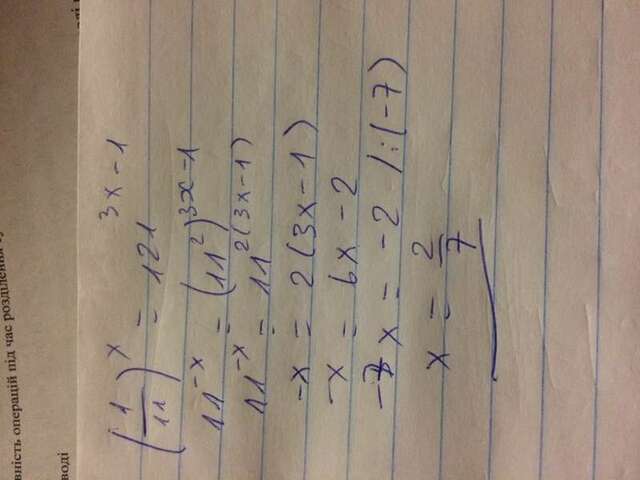 вність операцій під час розділення
воді
(1/11)^x = 121^(3x-1)
11^(-x) = (11^2)^(3x-1)
11^(-x) = 11^(2(3x-1))
-x = 2(3x-1)
-x = 6x - 2
-7x = -2 /:(-7)
x = 2/7